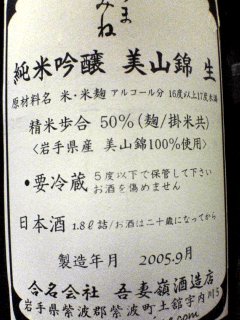 ま
みね
純米吟醸 美山錦 生
原材料名 米・米麹 アルコール分 16度以上17度未満
精米歩合 50%(麹/掛米共)
<岩手県産 美山錦100%使用>
・要冷蔵 5度以下で保管して下さい
お酒を傷めません
日本酒 1.8ℓ詰/お酒は二十歳になってから
製造年月 2005.9月
合名会社 吾妻嶺酒造店
岩手県紫波郡紫波町土舘字内川5